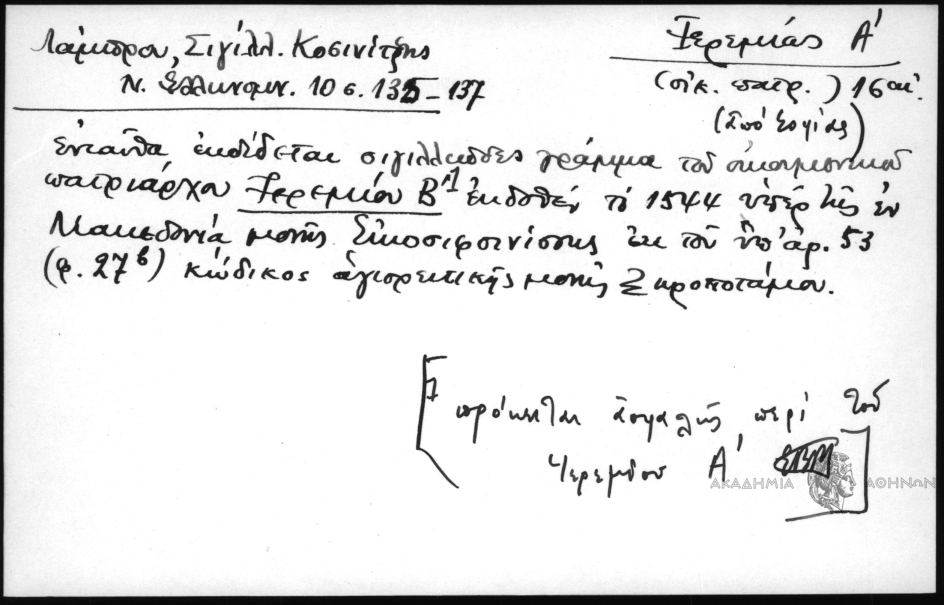 Λάμπρου, Σιγίλλ. Κοσινίτζης
Ν. Ἑλληνομν. 10 σ. 135-137
Ἱερεμίας Α΄
(οἰκ. πατρ.) 16 αἰ.
(ἀπὸ Σοφίας)
ἐνταῦθα ἐκδίδεται σιγιλλιῶδες γράμμα τοῦ οἰκουμενικοῦ
πατριάρχου Ἱερεμίου Β΄ 1 ἐκδοθὲν τὸ 1544 ὑπὲρ τῆς ἐν
Μακεδονίᾳ μονῆς Εἰκοσιφοινίσσης ἐκ τοῦ ὑπ' ἀρ. 53
(φ. 27β) κώδικος ἁγιορειτικῆς μονῆς Ξηροποτάμου.
[1 πρόκειται ἀσφαλῶς περὶ τοῦ
Ἱερεμίου Α΄ ]
ΑΚΑΔΗΜΙΑ ΑΘΗΝΩΝ